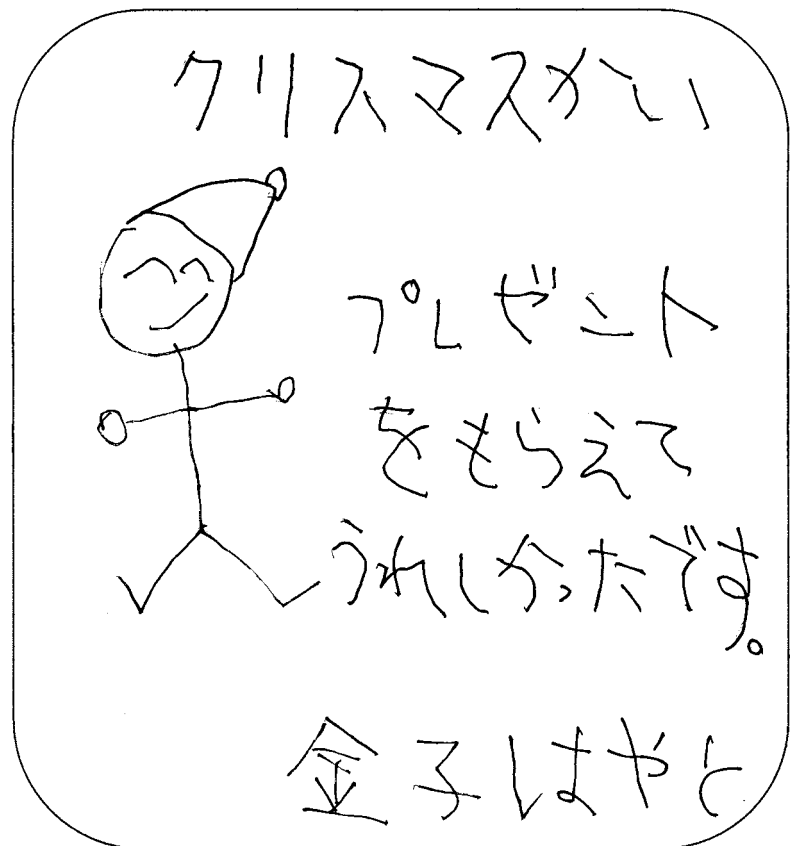 クリスマスかい
プレゼント
をもらえて
うれしかったです。
金子はやと